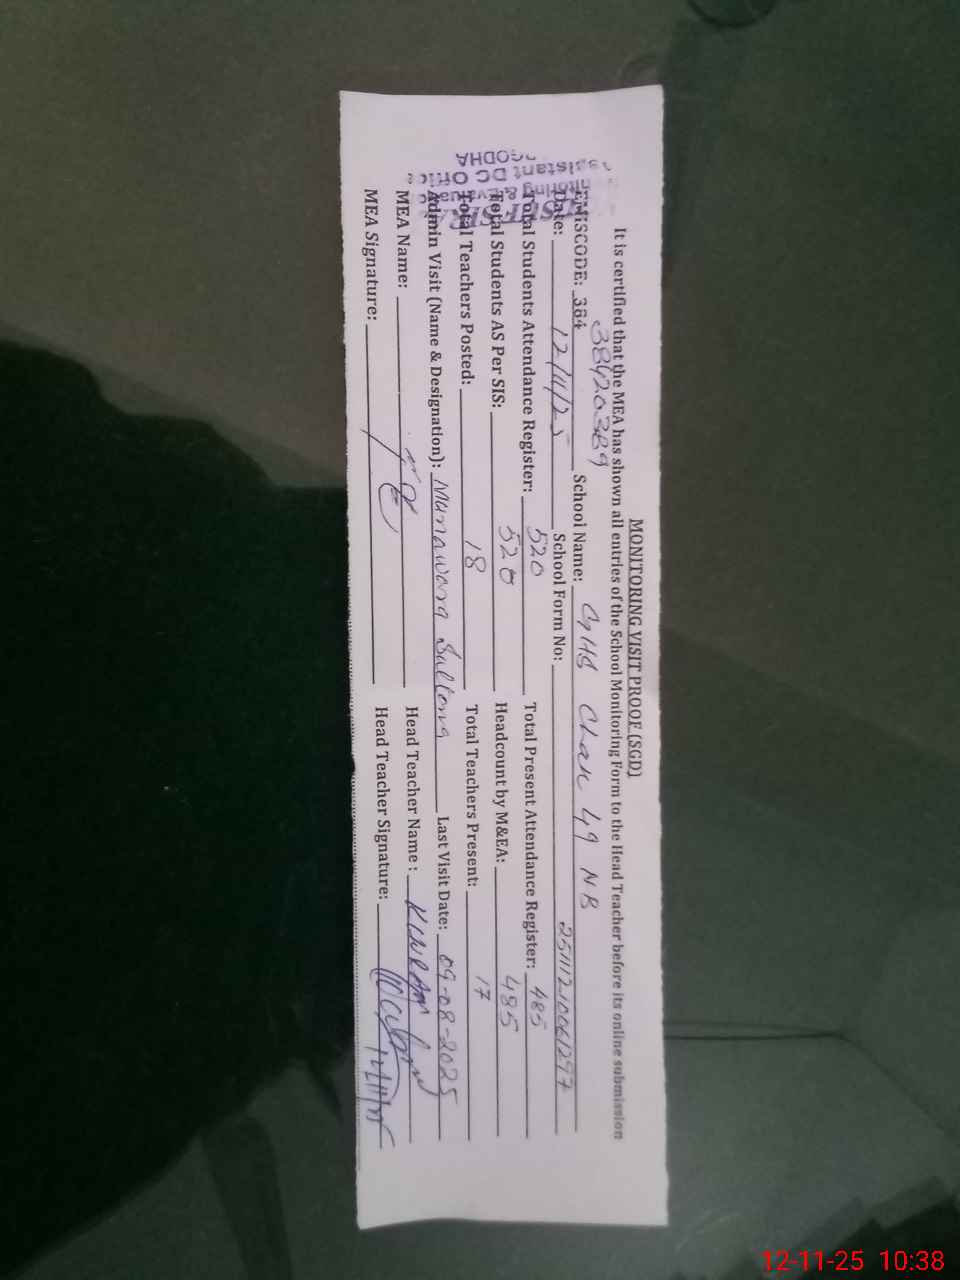 MONITORING VISIT PROOF (SGD)
It is certified that the MEA has shown all entries of the School Monitoring Form to the Head Teacher before its online submission
38420389
EMISCODE: 384 School Name: GGHS Chak 49 NB
Date: 12/11/25 School Form No: 251112100661297
Total Students Attendance Register: 520 Total Present Attendance Register: 485
Total Students AS Per SIS: 520 Headcount by M&EA: 485
Total Teachers Posted: 18 Total Teachers Present: 17
Admin Visit (Name & Designation): Munawara Sultana Last Visit Date: 09-08-2025
MEA Name: Head Teacher Name :
MEA Signature: Head Teacher Signature:
Assistant DC Office
12-11-25 10:38